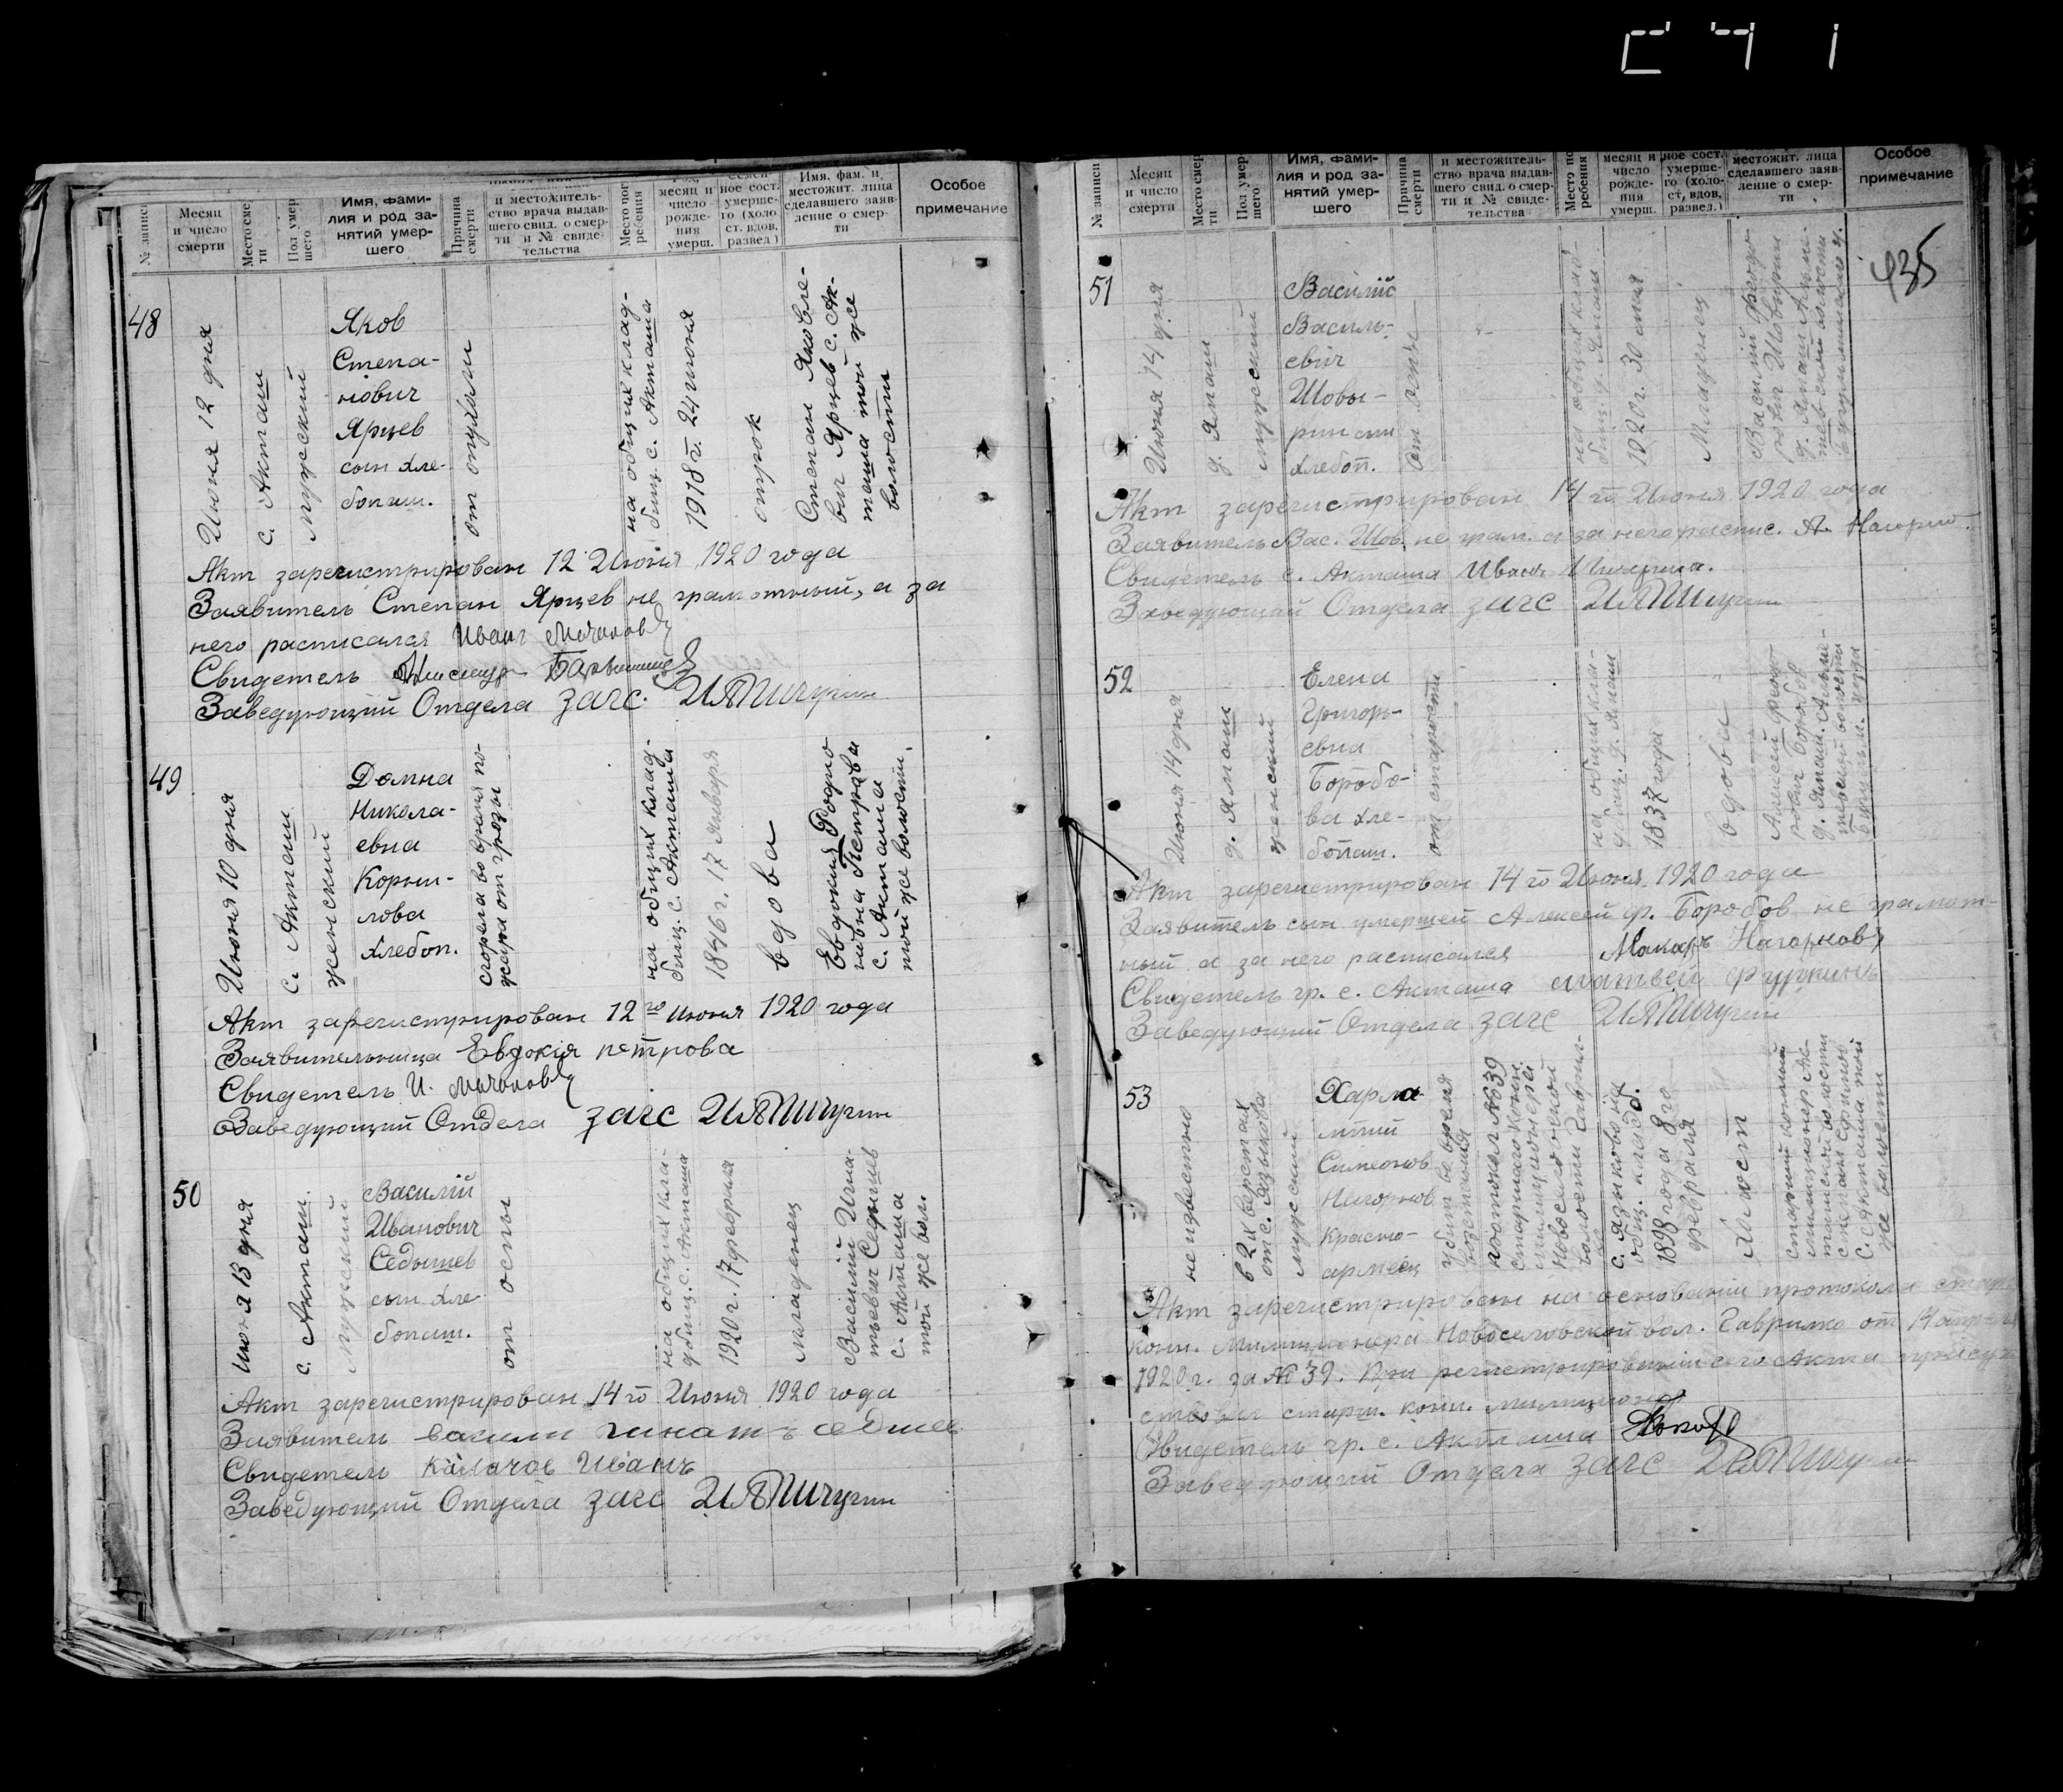 № записи
Месяц и число смерти
Место смерти
Пол умершего
Имя, фамилия и род занятий умершего
Причина смерти
и местожительство врача выдавшего свид. о смерти и № свидетельства
Место погребения
месяц и число рождения умерш.
ное сост. умершего (холост. вдов. развед.)
Имя, фам. и местожит. лица сделавшего заявление о смерти
Особое примечание
48
Июня 12 дня
с. Акташ
мужский
Яков
Степа-
нович
Ярцев
сын хле-
бопаш.
от опухоли
на общих клад-
бищ. с. Акташа
1918 г. 24 июня
отрок
Степан Яковле-
вич Ярцев с. Ак-
таша той же
волости
Акт зарегистрирован 12 Июня 1920 года
Заявитель Степан Ярцев не грамотный, а за
него расписался Иван
Свидетель
Заведующий Отдела загс. Пичугин
49
Июня 10 дня
с. Акташ
женский
Домна
Никола-
евна
Корни-
лова
хлебоп.
сгорела во время по-
жара от грозы
на общих клад-
бищ. с. Акташа
1846 г. 17 января
вдова
Евдокия Родио
новна Петрова
с. Акташа
той же волости.
Акт зарегистрирован 12го июня 1920 года
Заявительница Евдокія петрова
Свидетель И.
Заведующий Отдела загс Пичугин
50
Июня 13 дня
с. Акташ.
мужский
Василій
Иванович
Седышев
сын хле-
бопаш.
от оспы
на общих кла-
дбищ. с. Акташа
1920 г. 17 февраля
младенец
Василий Игна-
тьевич Седышев
с. Акташа
той же вол.
Акт зарегистрирован 14го Июня 1920 года
Заявитель
Свидетель Калачов Иванъ
Заведующий Отдела загс Пичугин
№ записи
Месяц и число смерти
Место смерти
Пол умершего
Имя, фамилия и род занятий умершего
Причина смерти
и местожительство врача выдавшего свид. о смерти и № свидетельства
Место погребения
месяц и число рождения умерш.
ное сост. умершего (холост, вдов, развед.)
местожит. лица сделавшего заявление о смерти
Особое примечание
435
51
Июня 14 дня
д. Ямаш
мужский
Василій
Василь-
евіч
Шовы-
рин сын
хлебоп.
от оспы
на общих клад-
бищ. д. Ямаш
1920 г. 30 мая
Младенец
Василий Федо
д. Ямаш
Акт зарегистрирован 14го Июня 1920 года
Заявитель Вас. Шов. не грам. а за него распис. А.
Свидетель с. Акташа Иван
Заведующий Отдела загс Пичугин
52
Июня 14 дня
д. Ямаш
женский
Елена
Григорь-
евна
Боробо-
ва хле-
бопаш.
от старости
на общих кла-
дбищ. д. Ямаш
1837 года
вдова
Алексей Федо
рович Боробов
д. Ямаш. Альме-
тевской волости
Бугульм. уезда
Акт зарегистрирован 14го Июня 1920 года
Заявитель сын умершей Алексей Ф. Боробов не грамот-
ный а за него расписался Макаръ Нагорновъ
Свидетель гр. с. Акташа матвей
Заведующий Отдела загс Пичугин
53
неизвестно
в 2х верстах
от с. Языкова
мужский
Харла
мпий
Симеонов
Нагорнов
Красно-
армеец
убит во время
восстания
протокол № 39
старшаго конн.
милиционера
Новоселовской
волости Гаврил-
ко
с. Языково на
общ. кладб.
1898 года 8го
февраля
Холост
старший конный
милиционер Ак-
ташской волости
с. Акташа той
же волости
Акт зарегистрирован на основании протокола стар
конн. Милиционера Новоселовской вол. Гаврилко от 14 апреля
1920 г. за № 39. При регистрировании сего Акта присут
ствовал старш. конн. милиционер
Свидетель гр. с. Акташа
Заведующий Отдела загс Пичугин